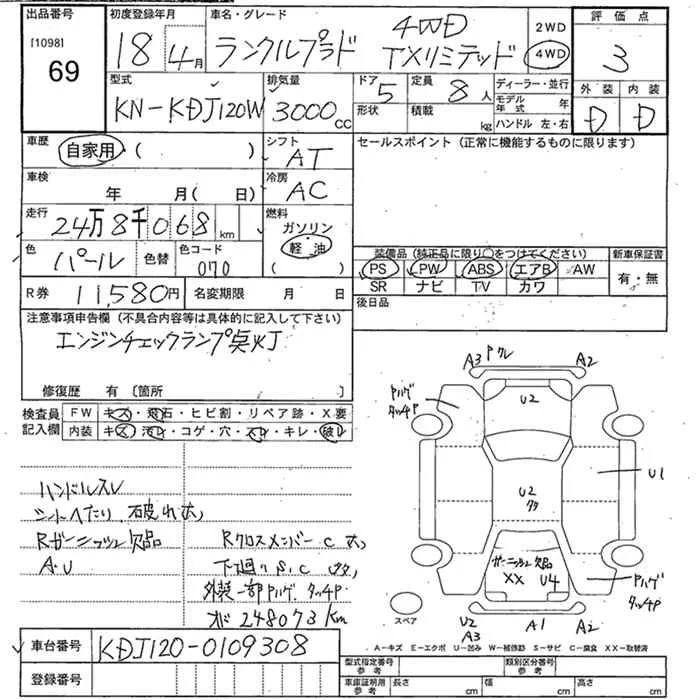 出品番号 初度登録年月 車名・グレード 評価点
[1098]
69
18 4月 ランクルプラド 4WD TXリミテッド
2WD
4WD
3
型式 排気量 ドア 定員 ディーラー・並行 外装 内装
KN-KDJ120W 3000cc 5 8人
形状 積載 kg
モデル年式 年
ハンドル 左・右
D D
車歴 自家用・( )
シフト AT
セールスポイント(正常に機能するものに限ります)
車検 年 月( 日)
冷房 AC
走行 24万8千068km
燃料 ガソリン 軽油 ( )
色 パール 色替 色コード 070
装備品(純正品に限り○をつけてください) 新車保証書
PS PW ABS エアB AW
SR ナビ TV カワ
有・無
R券 11,580円 名変期限 月 日
後日品
注意事項申告欄(不具合内容等は具体的に記入して下さい)
エンジンチェックランプ点灯
修復歴 有 〔箇所 〕
検査員記入欄
FW キズ・飛石・ヒビ割・リペア跡・X要
内装 キズ・汚れ・コゲ・穴・スレ・キレ・破レ
ハンドルスレ
シートへたり、破れ
Rガーニッシュ欠品
A.U
Rクロスメンバー C
下廻り S.C
外装一部Pハゲ タッチP
248073km
A3 Pクレ A2
Pハゲ タッチP
U2
U1
U2
ガーニッシュ欠品
XX U4
Pハゲ タッチP
スペア
U2 A3 A1 A2
A-キズ E-エクボ U-凹み W-補修跡 S-サビ C-腐食 XX-取替済
車台番号 KDJ120-0109308
登録番号
型式指定番号 参考 類別区分番号 参考
車庫証明用 参考 長さ cm 幅 cm 高さ cm